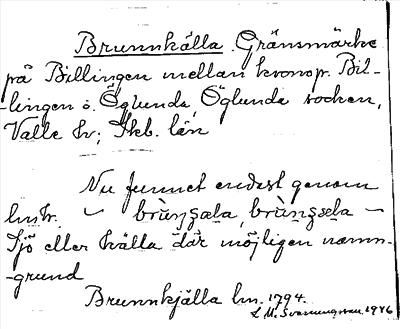 Brunnkälla Gränsmärke
på Billingen mellan kronop. Bil-
-lingen o. Öglunda, Öglunda socken,
Valle hd; Skb. län
Nu funnet endast genom
lmhr. brùŋsala, brùŋsela -
Sjö eller källa där möjligen namn-
-grund
Brunnkjälla lm. 1794.
L. M. Svanungsson. 1946